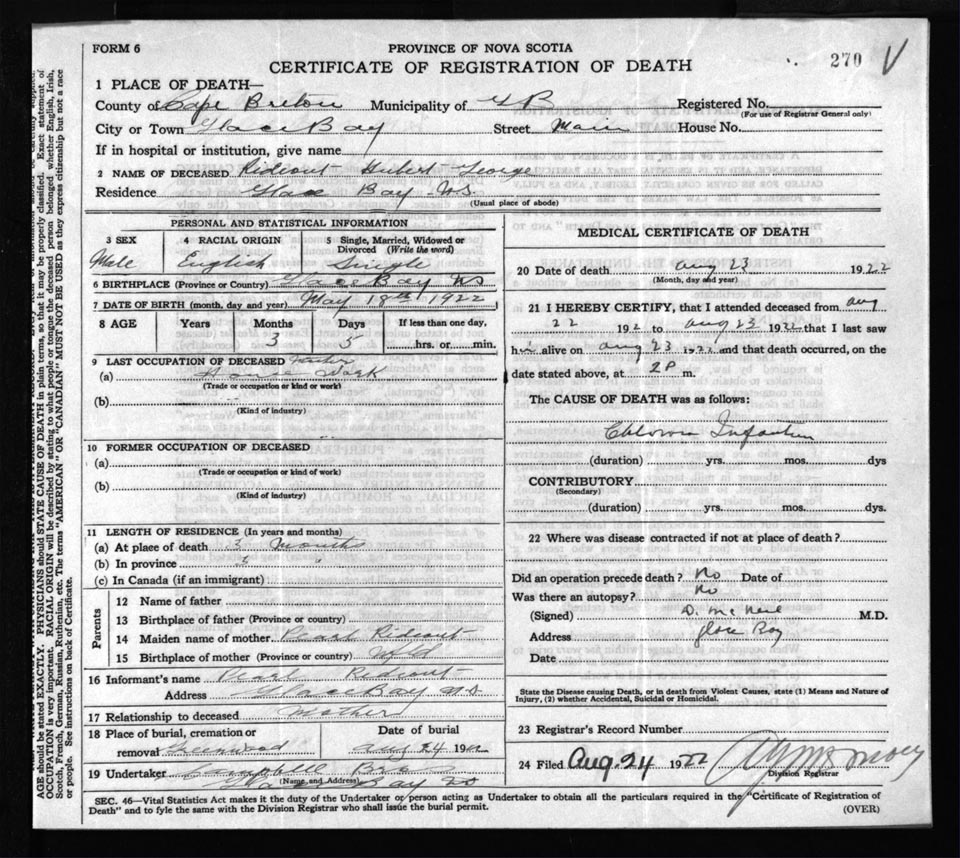 FORM 6
PROVINCE OF NOVA SCOTIA
CERTIFICATE OF REGISTRATION OF DEATH
270
1 PLACE OF DEATH—
County of Cape Breton Municipality of G B Registered No.
(For use of Registrar General only)
City or Town Glace Bay Street Main House No.
If in hospital or institution, give name
2 NAME OF DECEASED Rideout Hubert George
Residence Glace Bay N.S.
(Usual place of abode)
PERSONAL AND STATISTICAL INFORMATION
3 SEX 4 RACIAL ORIGIN 5 Single, Married, Widowed or Divorced (Write the word)
Male English Single
6 BIRTHPLACE (Province or Country) Glace Bay NS
7 DATE OF BIRTH (month, day and year) May 18th 1922
8 AGE Years Months Days If less than one day,
3 5 hrs. or min.
9 LAST OCCUPATION OF DECEASED
(a) House Work
(Trade or occupation or kind or work)
(b)
(Kind of industry)
10 FORMER OCCUPATION OF DECEASED
(a)
(Trade or occupation or kind of work)
(b)
(Kind of industry)
11 LENGTH OF RESIDENCE (In years and months)
(a) At place of death 3 Months
(b) In province 3 "
(c) In Canada (if an immigrant)
Parents
12 Name of father
13 Birthplace of father (Province or country)
14 Maiden name of mother Pearl Rideout
15 Birthplace of mother (Province or country) Nfld
16 Informant's name Pearl Rideout
Address Glace Bay N.S
17 Relationship to deceased Mother
18 Place of burial, cremation or removal Greenwood
Date of burial Aug 24 192
19 Undertaker Bros
(Name and Address)
Glace Bay NS
MEDICAL CERTIFICATE OF DEATH
20 Date of death Aug 23 1922
(Month, day and year)
21 I HEREBY CERTIFY, that I attended deceased from Aug
22 192 to Aug 23 1922 that I last saw
him alive on Aug 23 1922 and that death occurred, on the
date stated above, at 2P m.
The CAUSE OF DEATH was as follows:
(duration) yrs. mos. dys
CONTRIBUTORY
(Secondary)
(duration) yrs. mos. dys.
22 Where was disease contracted if not at place of death?
Did an operation precede death? No Date of
Was there an autopsy? No
(Signed) D. McNeil M.D.
Address Glace Bay
Date
State the Disease causing Death, or in death from Violent Causes, state (1) Means and Nature of
Injury, (2) whether Accidental, Suicidal or Homicidal.
23 Registrar's Record Number
24 Filed Aug 24 1922
Division Registrar
SEC. 46—Vital Statistics Act makes it the duty of the Undertaker or person acting as Undertaker to obtain all the particulars required in the "Certificate of Registration of
Death" and to fyle the same with the Division Registrar who shall issue the burial permit.
(OVER)
AGE should be stated EXACTLY. PHYSICIANS should STATE CAUSE OF DEATH in plain terms, so that it may be properly classified. Exact statement of
OCCUPATION is very important. RACIAL ORIGIN will be described by stating to what people or tongue the deceased person belonged whether English, Irish,
Scotch, French, German, Russian, Ruthenian, etc. The terms "AMERICAN" OR "CANADIAN" MUST NOT BE USED as they express citizenship but not a race
or people. See instructions on back of Certificate.